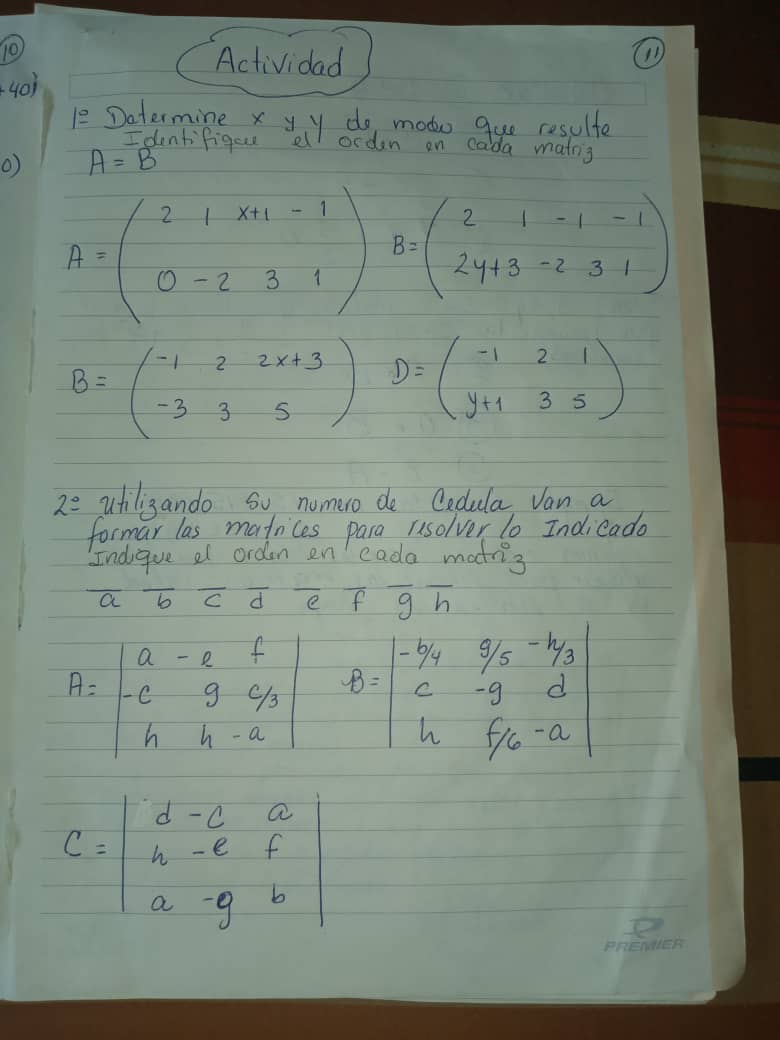 10
11
Actividad
+40)
0)
1º Determine x y y de modo que resulte
Identifique el orden en cada matriz
A = B
A = ( 2 1 x+1 - 1
0 - 2 3 1 )
B = ( 2 1 - 1 - 1
2y+3 - 2 3 1 )
B = ( -1 2 2x+3
-3 3 5 )
D = ( -1 2 1
y+1 3 5 )
2º utilizando su numero de Cedula Van a
formar las matrices para resolver lo Indicado
Indique el orden en cada matriz
a b c d e f g h
A = | a - e f |
| -c g c/3 |
| h h - a |
B = | -b/4 g/5 -h/3 |
| c -g d |
| h f/6 -a |
C = | d -c a |
| h -e f |
| a -g b |
PREMIER